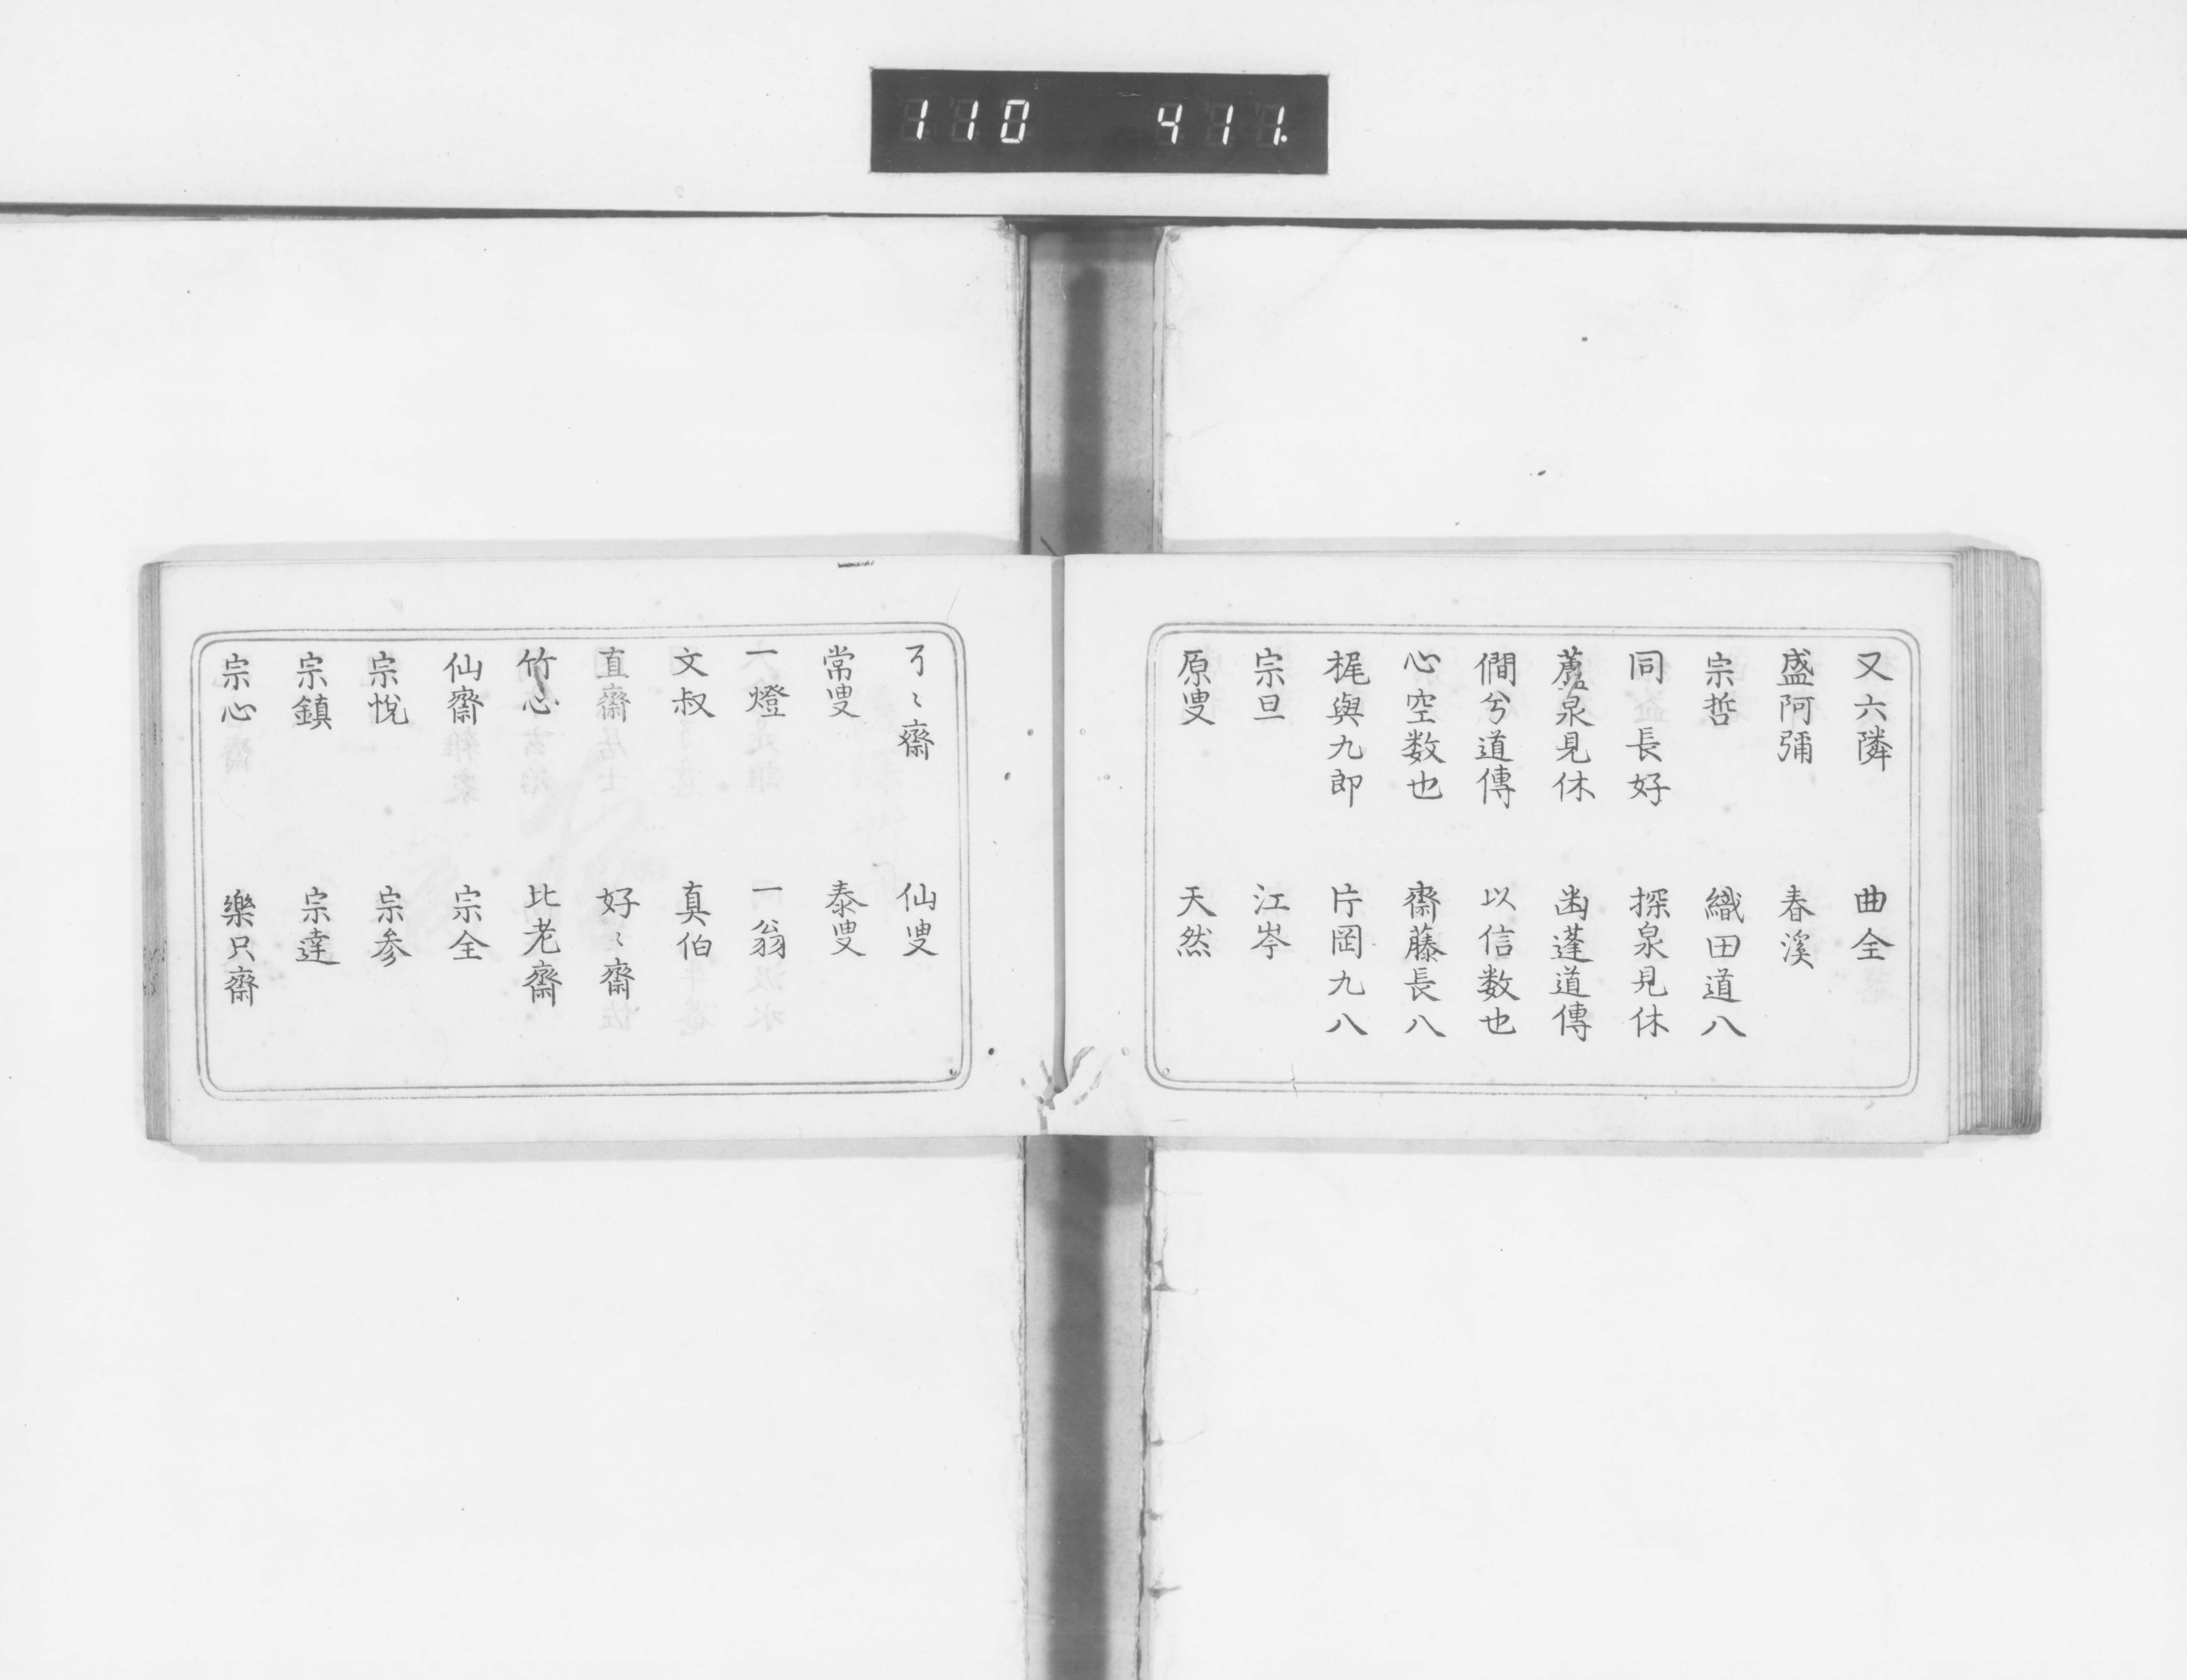 110 411.
又六隣 曲全
盛阿彌 春溪
宗哲 織田道八
同長好 探泉見休
蘆泉見休 凼蓬道傳
僩兮道傳 以信数也
心空数也 齋藤長八
梶與九郎 片岡九八
宗旦 江岑
原叟 天然
了〻齋 仙叟
常叟 泰叟
一燈 一翁
文叔 真伯
直齋 好〻齋
竹心 比老齋
仙齋 宗全
宗悅 宗参
宗鎮 宗達
宗心 樂只齋